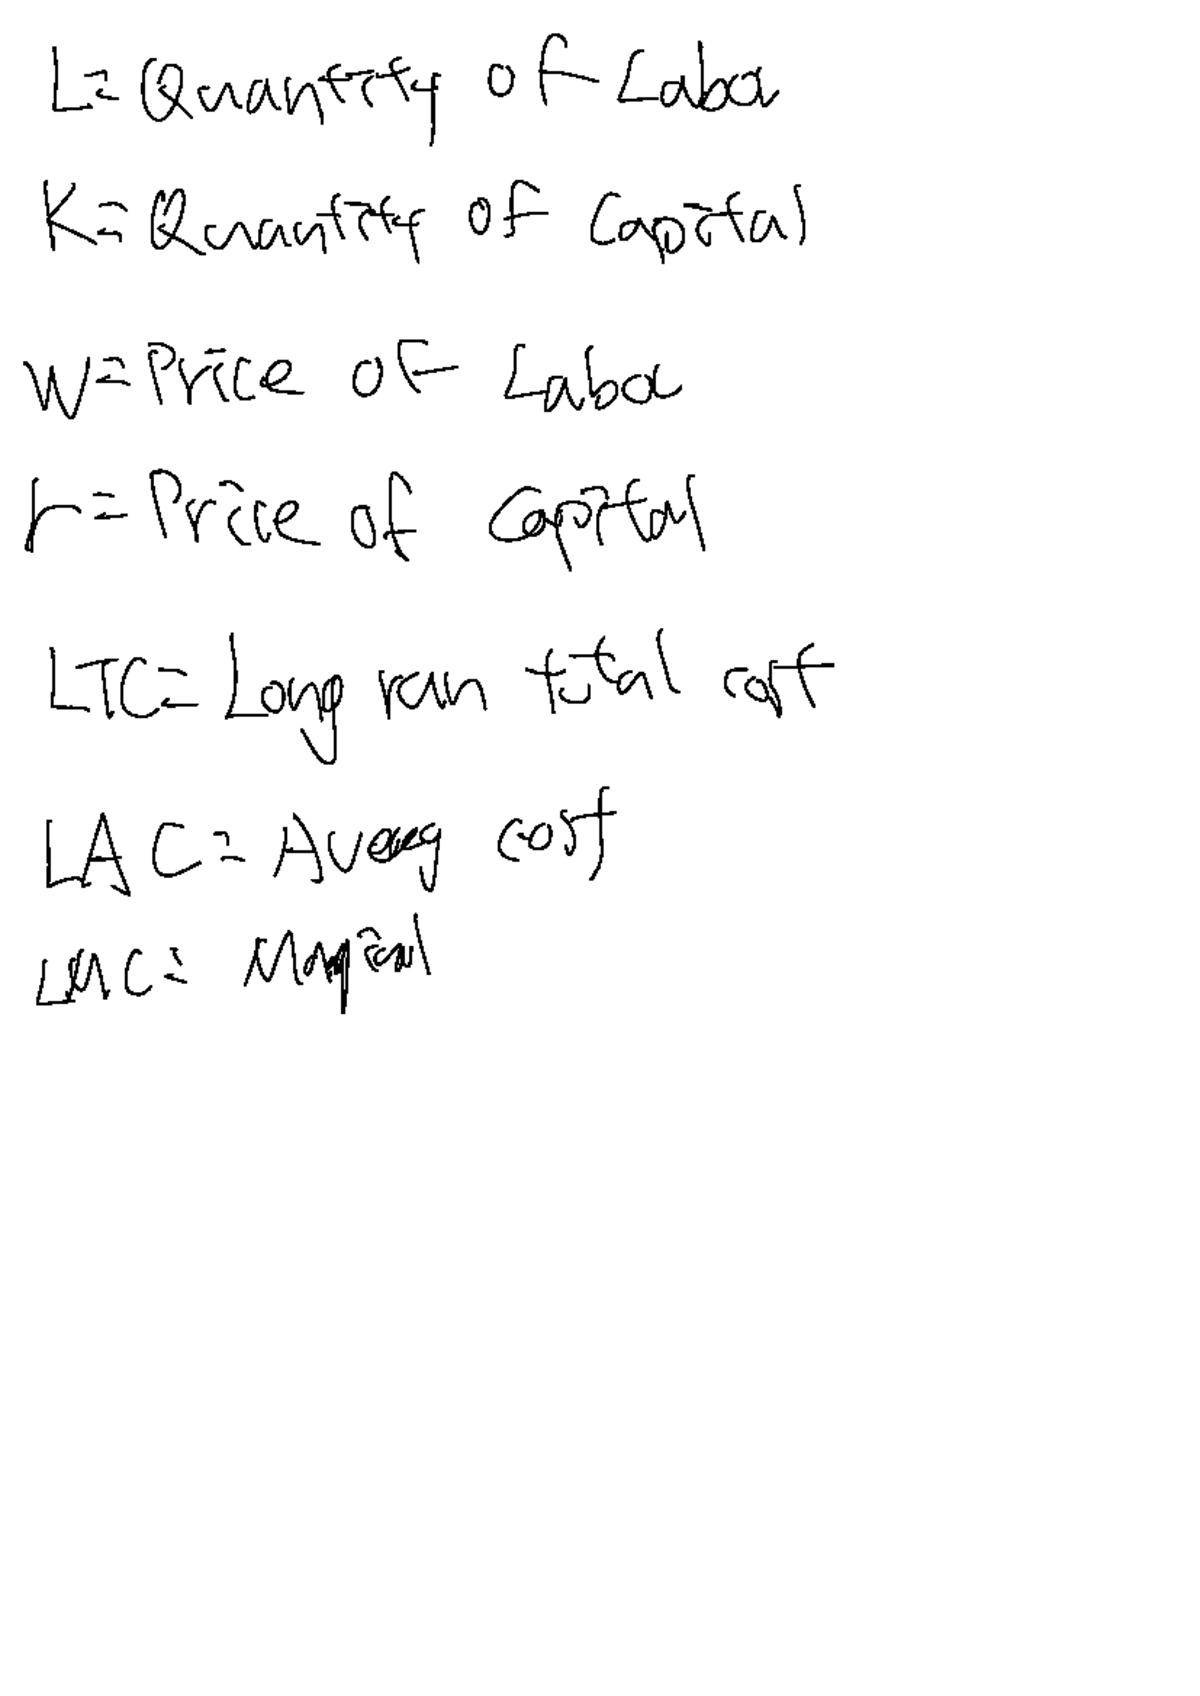 L = Quantity of Laba
K = Quantity of Capital
W = Price of Laba
r = Price of Capital
LTC = Long run total cost
LAC = Averg cost
LMC =